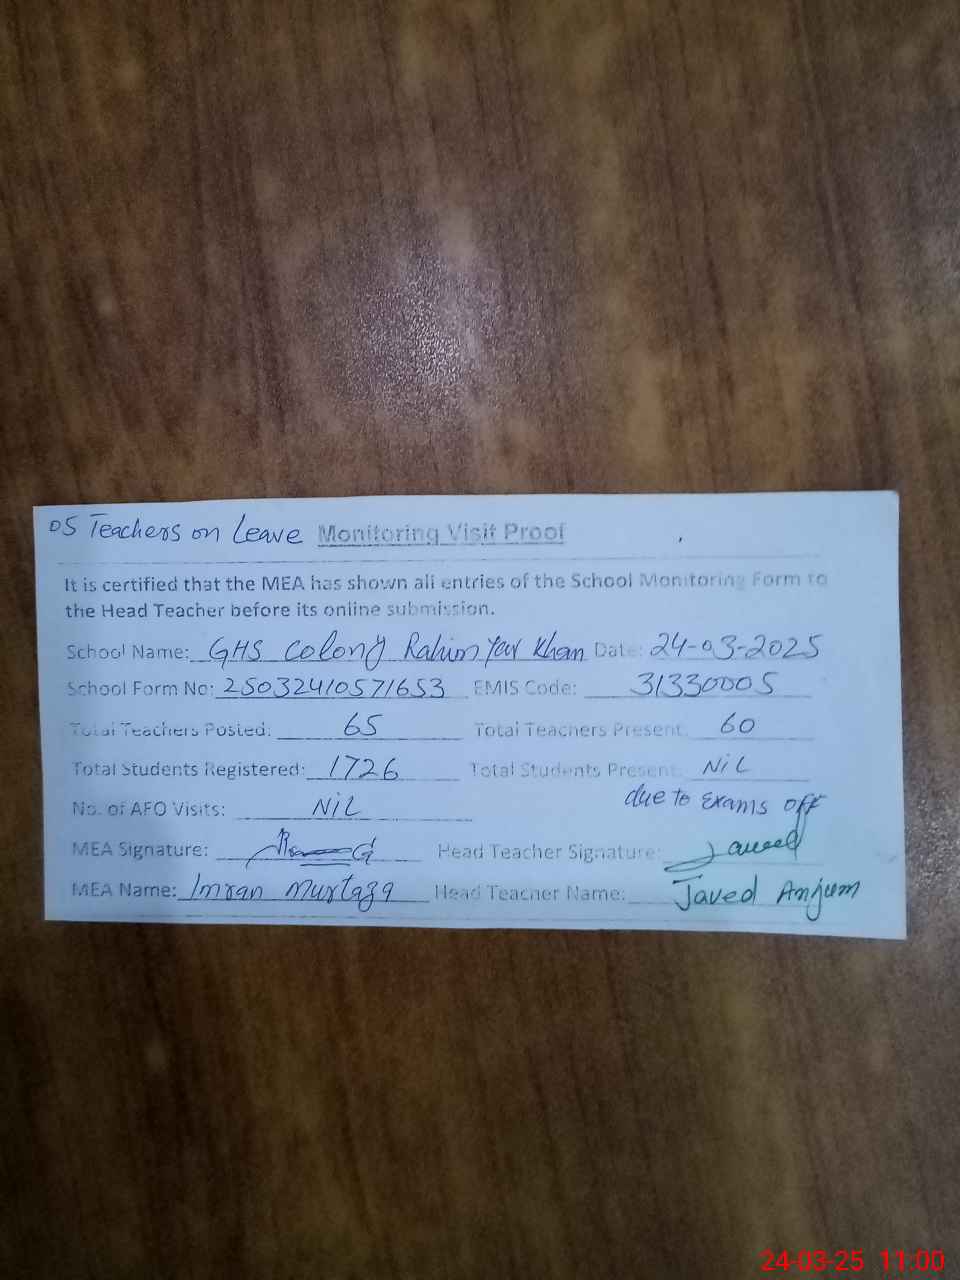 05 Teachers on Leave Monitoring Visit Proof
It is certified that the MEA has shown all entries of the School Monitoring Form to
the Head Teacher before its online submission.
School Name: GHS Colony Rahim Yar Khan Date: 24-03-2025
School Form No: 25032410571653 EMIS Code: 31330005
Total Teachers Posted: 65 Total Teachers Present: 60
Total Students Registered: 1726 Total Students Present: NiL
due to Exams off
No. of AFO Visits: NiL
MEA Signature: Head Teacher Signature: Javeed
MEA Name: Imran Murtaza Head Teacher Name: Javed Anjum
24-03-25 11:00